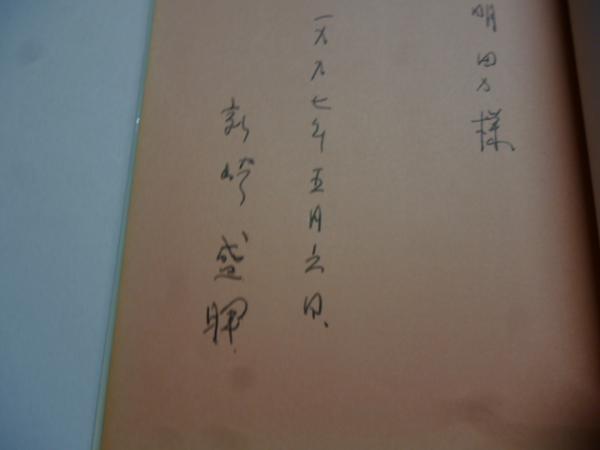 明田川様
一九九七年五月六日
新崎盛暉